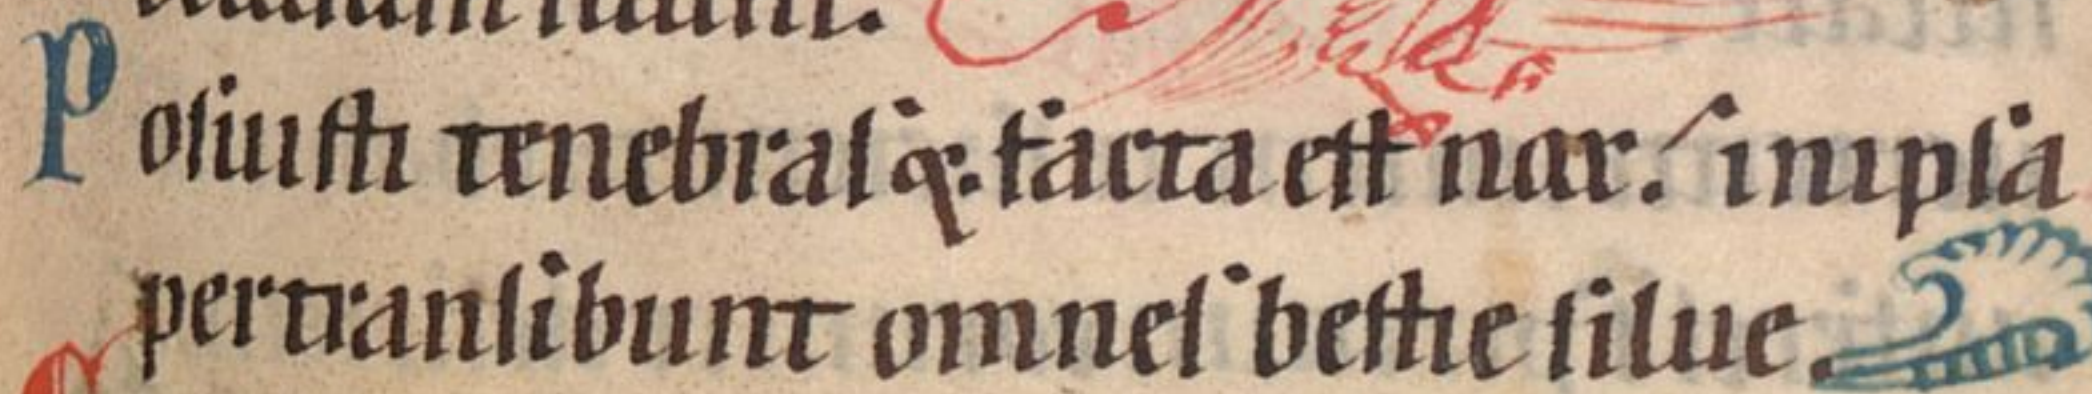 Poſuiſti tenebraſ q; facta eſt nox: in ipſa
pertranſibunt omneſ beſtie ſilue.